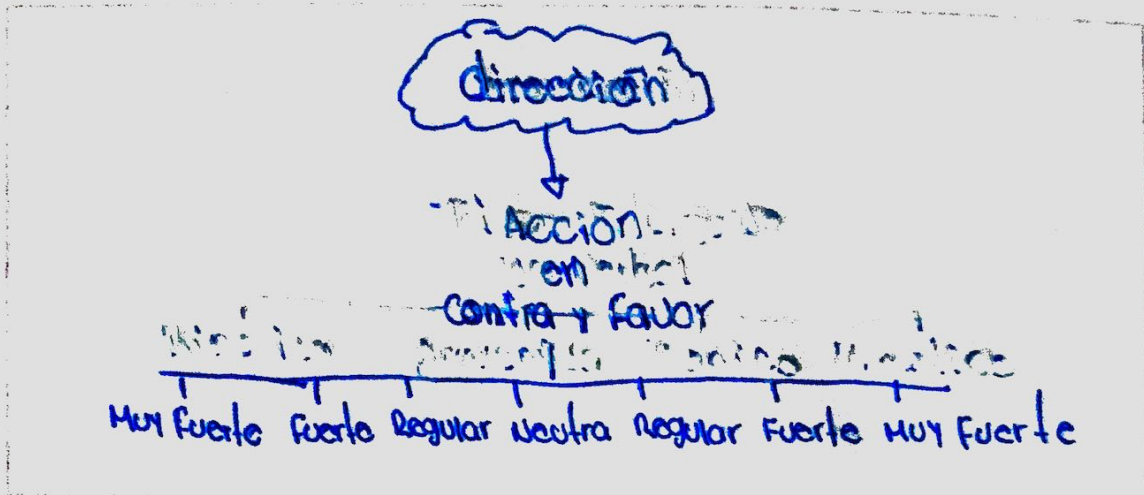 dirección
Acción
en
contra y favor
Muy Fuerte Fuerte Regular Neutra Regular Fuerte Muy Fuerte